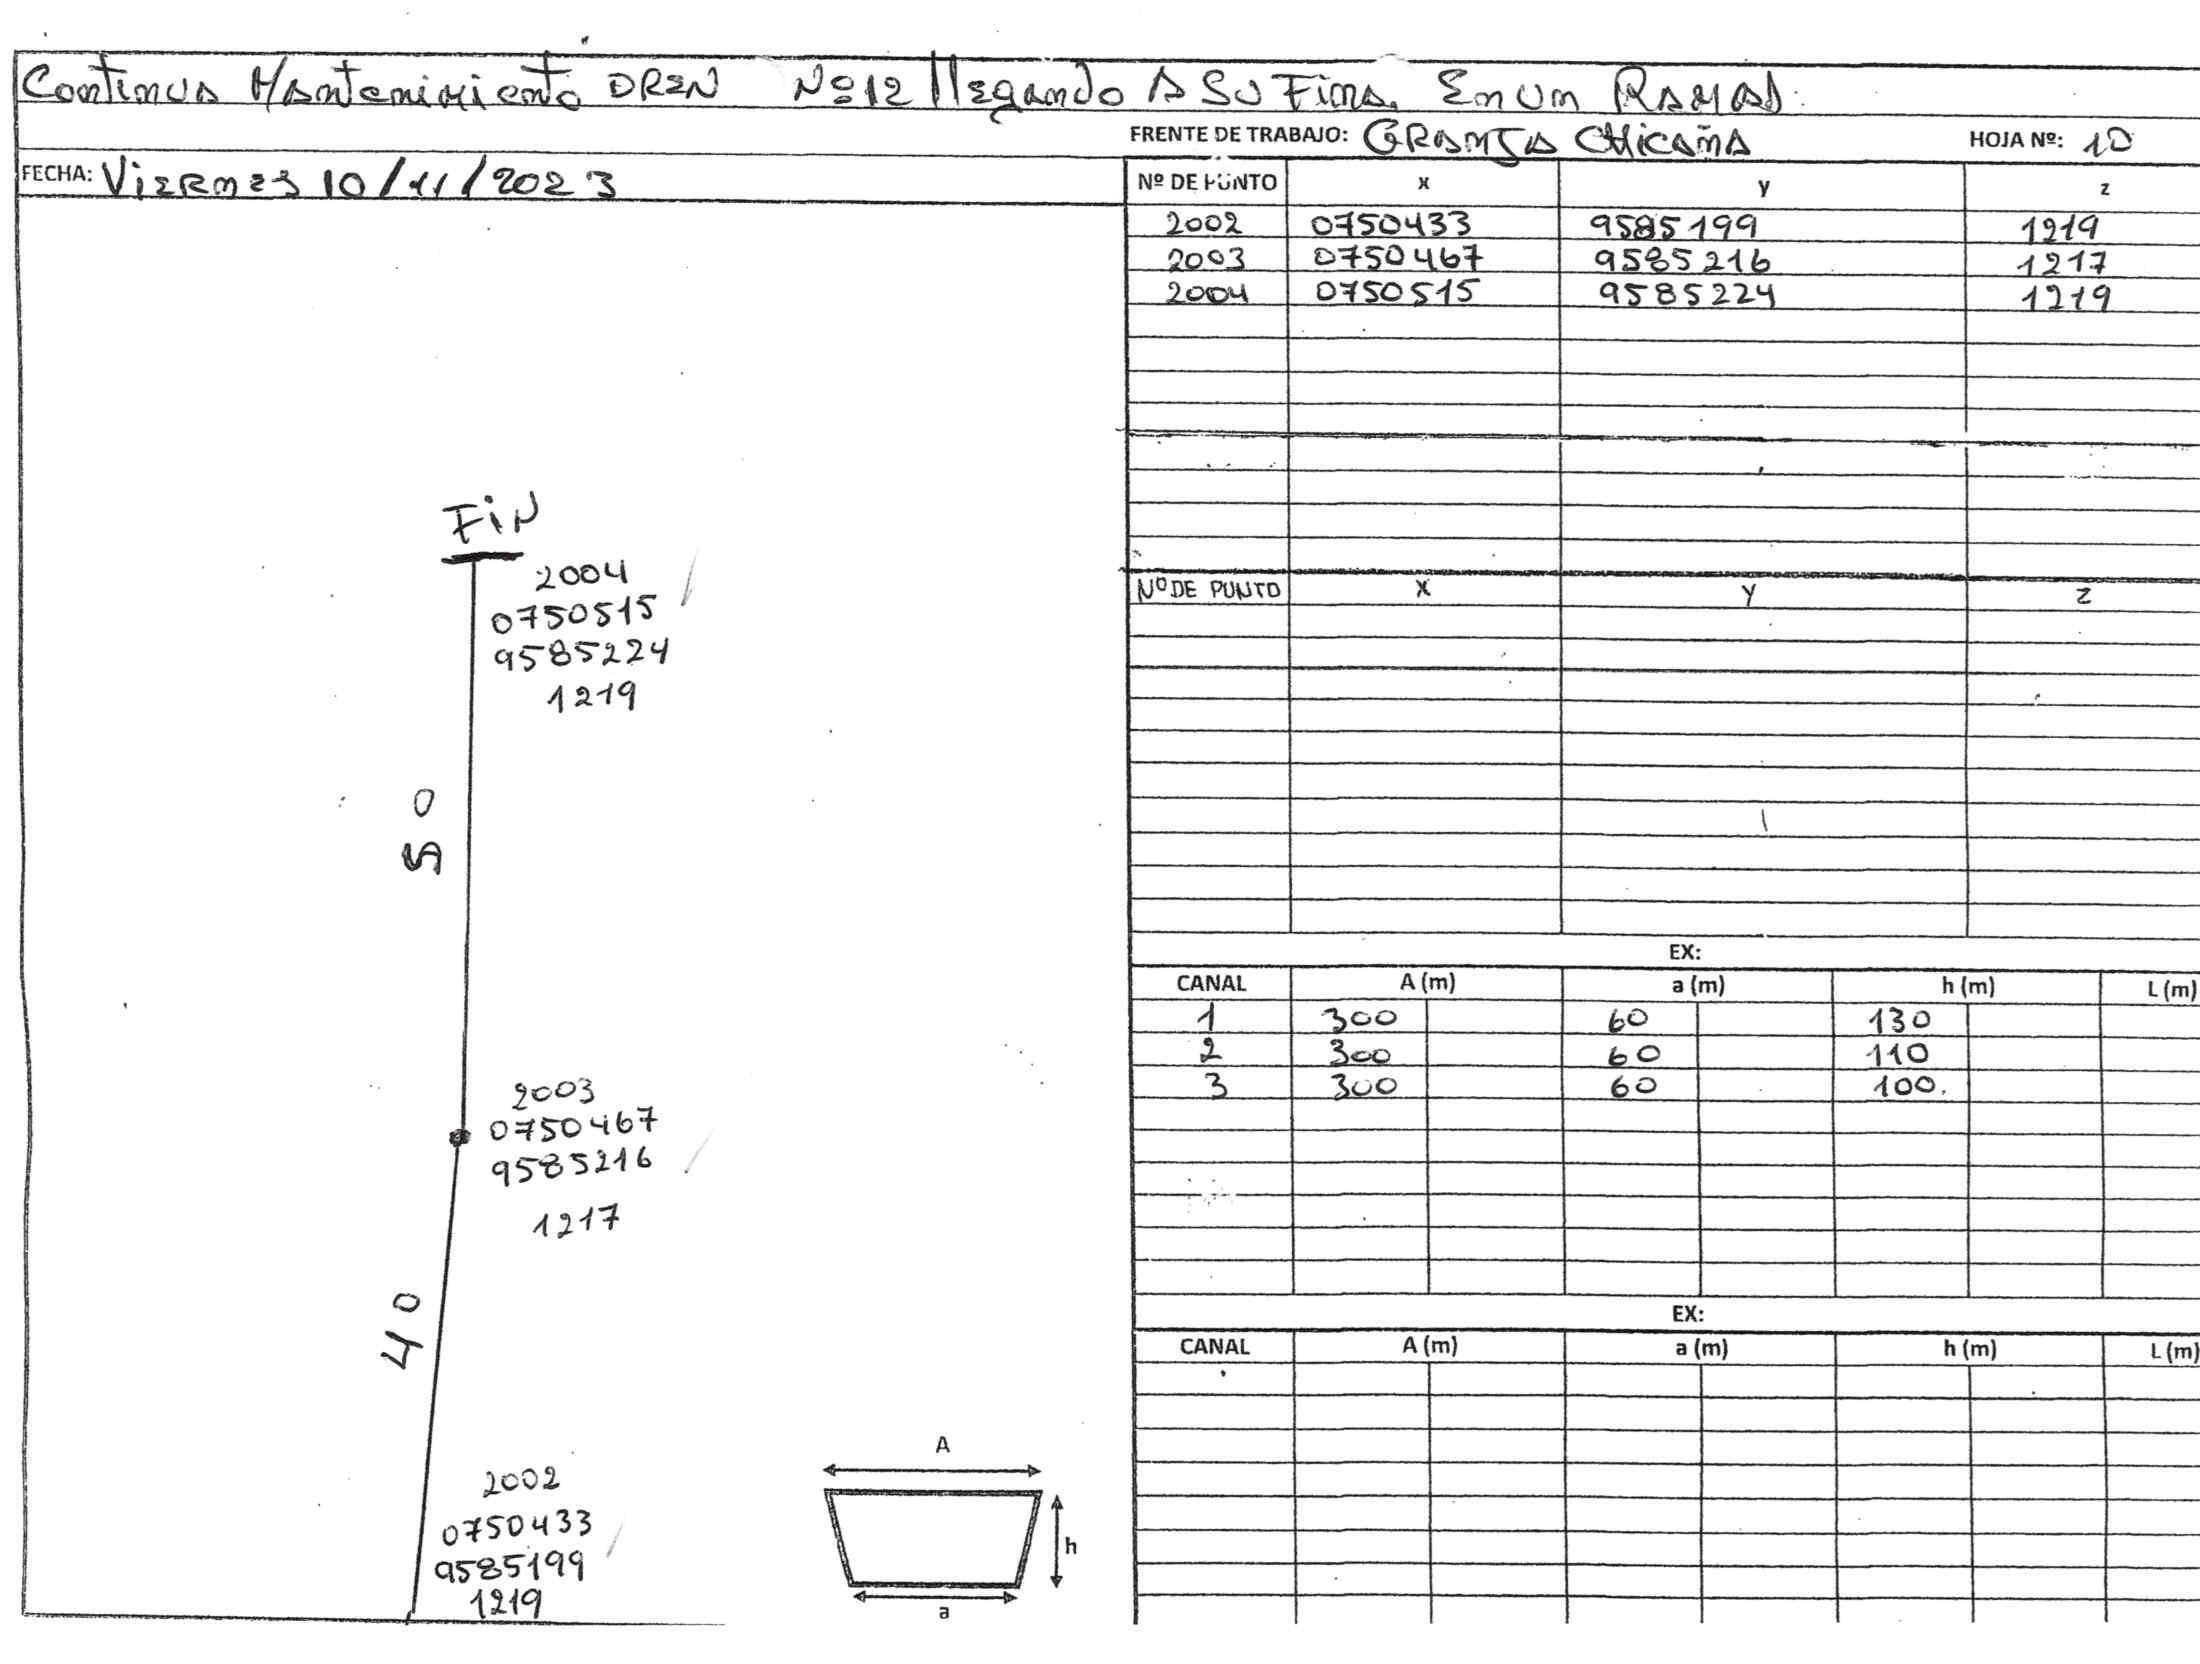 Continua Mantenimiento DREN Nº12 llegando A SU Fina. En un Ramal.
FRENTE DE TRABAJO: GRANJA CHICAÑA HOJA Nº: 10
FECHA: Viernes 10/11/2023
Nº DE PUNTO x y z
2002 0750433 9585199 1219
2003 0750467 9585216 1217
2004 0750515 9585224 1219
FiN
2004
0750515
9585224
1219
50
2003
0750467
9585216
1217
40
2002
0750433
9585199
1219
A
h
a
Nº DE PUNTO X Y Z
EX:
CANAL A (m) a (m) h (m) L (m)
1 300 60 130
2 300 60 110
3 300 60 100.
EX:
CANAL A (m) a (m) h (m) L (m)